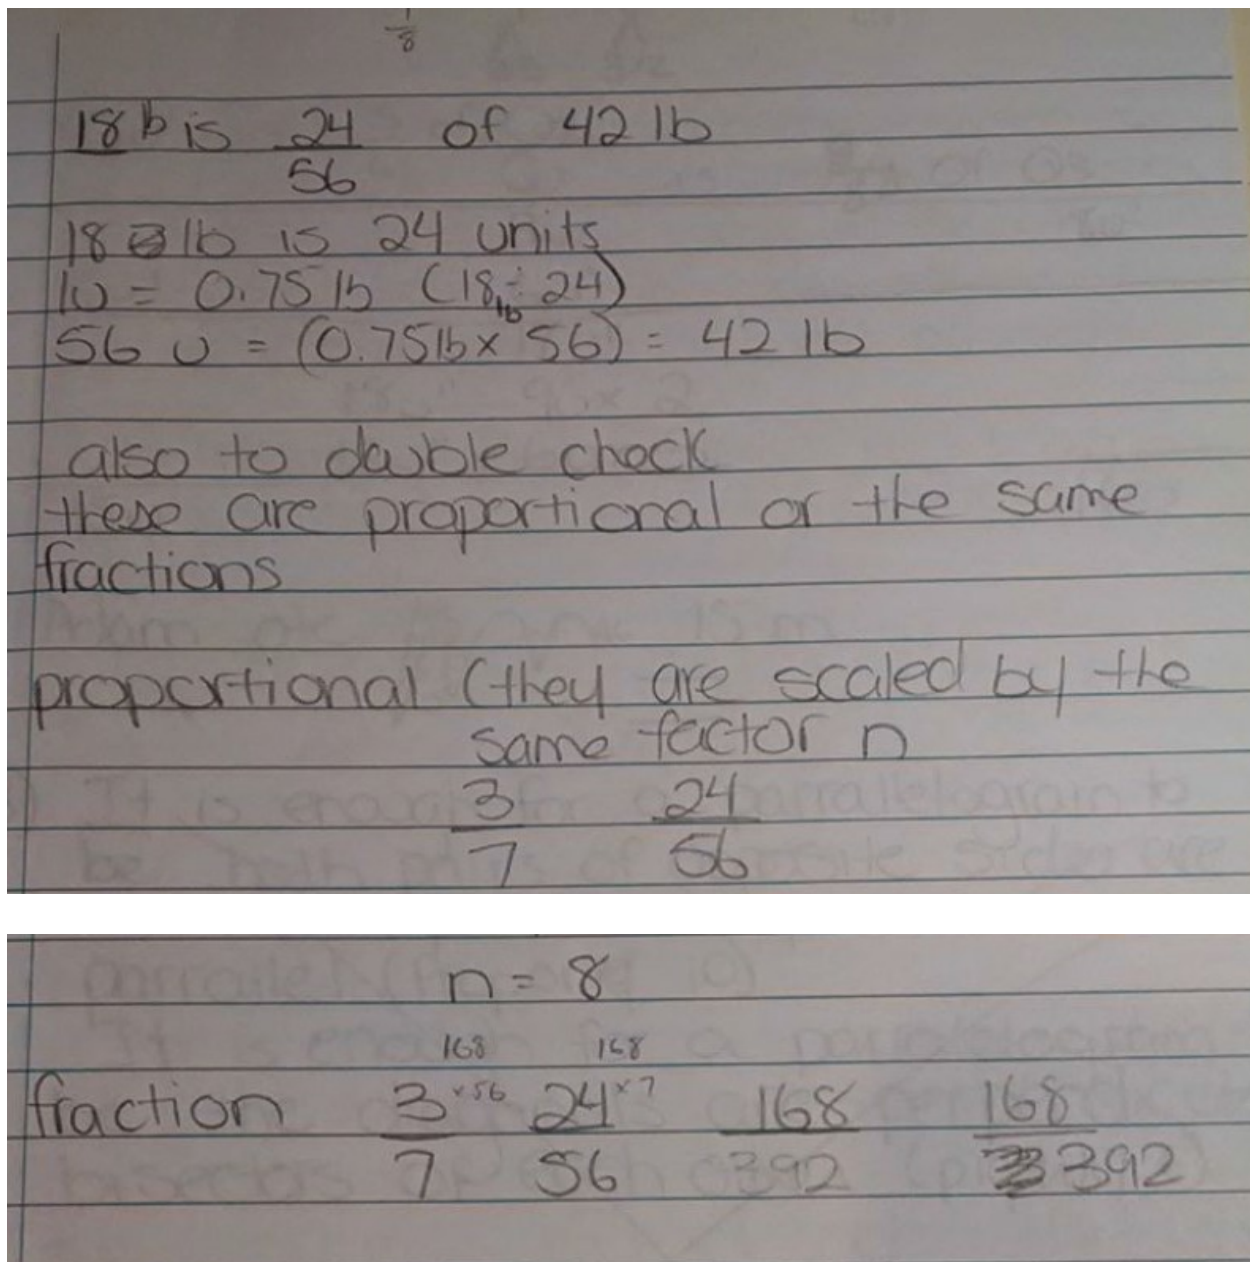 1/8
18 lb is 24/56 of 42 lb
18 lb is 24 units
1u = 0.75 lb (18 lb ÷ 24)
56 u = (0.75lb x 56) = 42 lb
also to double check
these are proportional or the same
fractions
proportional (they are scaled by the
same factor n
3/7 24/56
n = 8
168 168
fraction 3/7 x56 24/56 x7 168/392 168/392